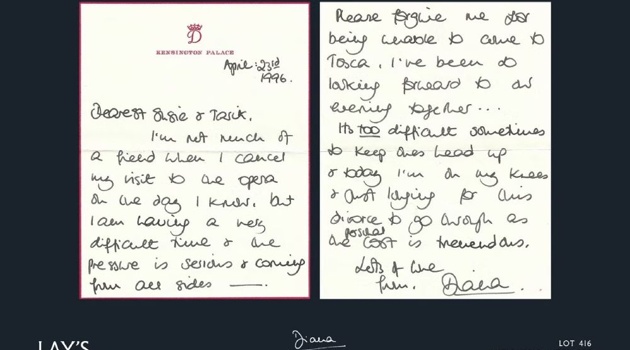 D
KENSINGTON PALACE
April: 23rd
1996.
Dearest Susie & Tarik,
I'm not much of
a friend when I cancel
my visit to the opera
on the day I know, but
I am having a very
difficult time & the
pressure is serious & coming
from all sides —.
Please forgive me for
being unable to come to
Tosca. I've been so
looking forward to our
evening together...
Its too difficult sometimes
to keep ones head up
& today I'm on my knees
& just longing for this
divorce to go through as
the personal cost is tremendous.
Lots of love
from, Diana.
Diana
LAY'S
LOT 416